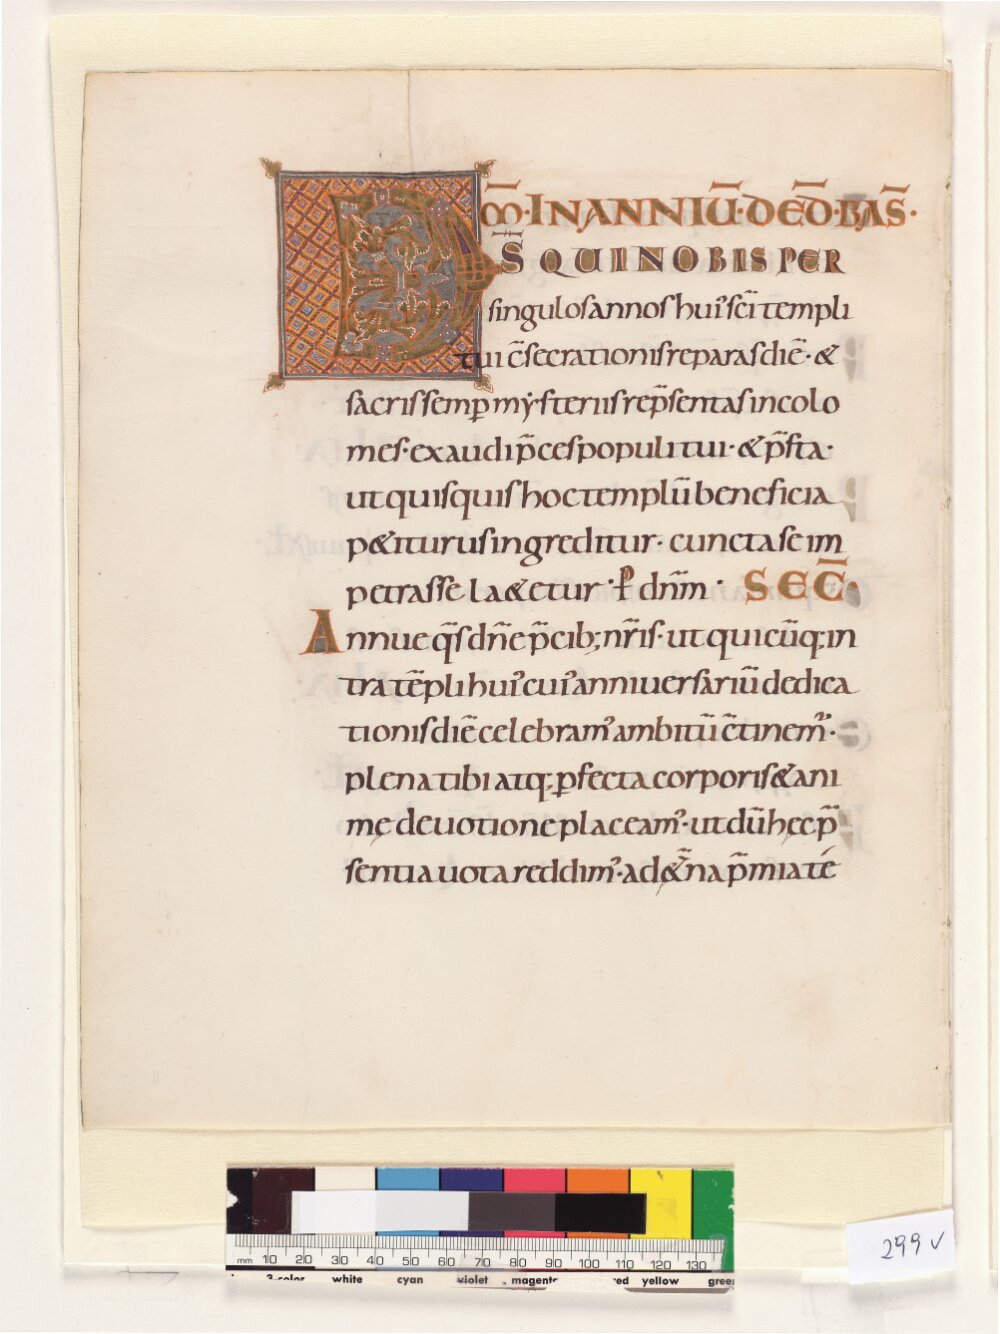 D
OM̅·IN ANNIU̅·DED̅·BAS̅·
S̅ QUI NOBIS PER
singulos annos hui᾽ sc̅i templi
tui c̅secrationis reparas die̅·&
sacris semp̱ mẏsteriis rep̅sentas incolo
mes· exaudi p̅ces populi tui·&p̅sta·
ut quisquis hoc templu̅ beneficia
p&iturus ingreditur· cuncta se im
petrasse l&a&etur· p̱ dn̅m· SEC̅·
Annue q̅s dn̅e p̅cib; nr̅is· ut quicu̅q; in
tra te̅pli hui᾽ cui᾽ anniuersariu̅ dedica
tionis die̅ celebram᾽ ambitu̅ c̅tinem᾽·
plena tibi atq; p̱fecta corporis & ani
mę deuotione placeam᾽· ut du̅ hęc p̅
sentia uota reddim᾽· ad &̅na p̅mia te
mm 10 20 30 40 50 60 70 80 90 100 110 120 130
3-color white cyan violet magenta red yellow green
299v